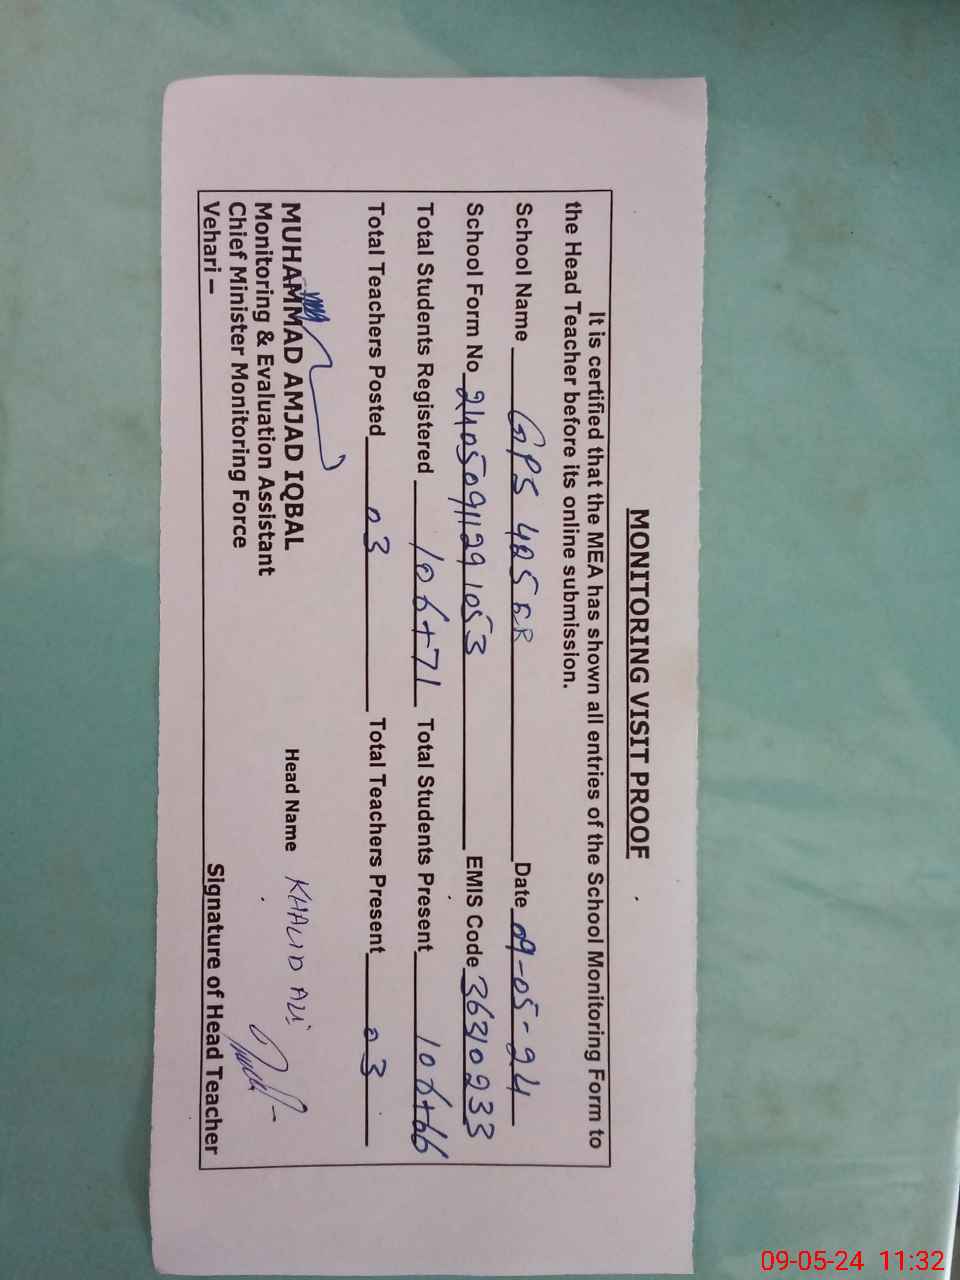 MONITORING VISIT PROOF
It is certified that the MEA has shown all entries of the School Monitoring Form to
the Head Teacher before its online submission.
School Name GPS 405 EB Date 09-05-24
School Form No 24050911291053 EMIS Code 36310233
Total Students Registered 106+71 Total Students Present 106+66
Total Teachers Posted 03 Total Teachers Present 03
MUHAMMAD AMJAD IQBAL
Monitoring & Evaluation Assistant
Chief Minister Monitoring Force
Vehari –
Head Name KHALID ALI
Signature of Head Teacher
09-05-24 11:32